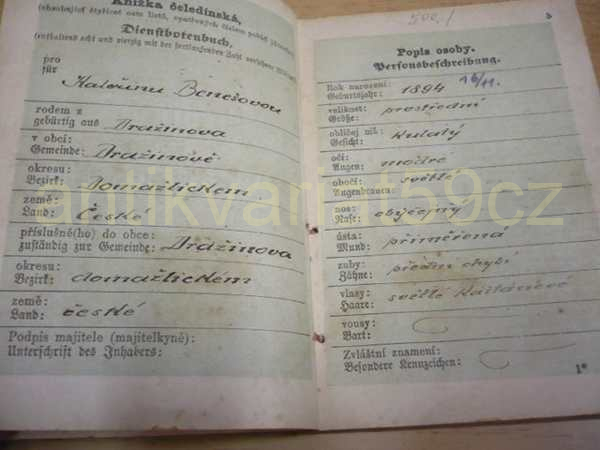 Knížka čeledínská,
Dienstbotenbuch,
pro
für Kateřinu Benešovou
rodem z
gebürtig aus Dražinova
v obci:
Gemeinde: Dražinově
okresu:
Bezirk: Domažlickém
země:
Land: České
příslušné(ho) do obce:
zuständig zur Gemeinde: Dražinova
okresu:
Bezirk: domažlickém
země:
Land: české
Podpis majitele (majitelkyně):
Unterschrift des Inhabers:
500,/
3
Popis osoby.
Personsbeschreibung.
Rok narození:
Geburtsjahr: 1894 16/11.
velikost:
Größe: prostřední
obličej níž:
Gesicht: kulatý
oči:
Augen: modré
obočí:
Augenbrauen: světlé
nos:
Nase: obyčejný
ústa:
Mund: přiměřená
zuby:
Zähne: přední chybí
vlasy:
Haare: světlé kaštanové
vousy:
Bart:
Zvláštní znamení:
Besondere Kennzeichen:
1*
antikvariat 9cz